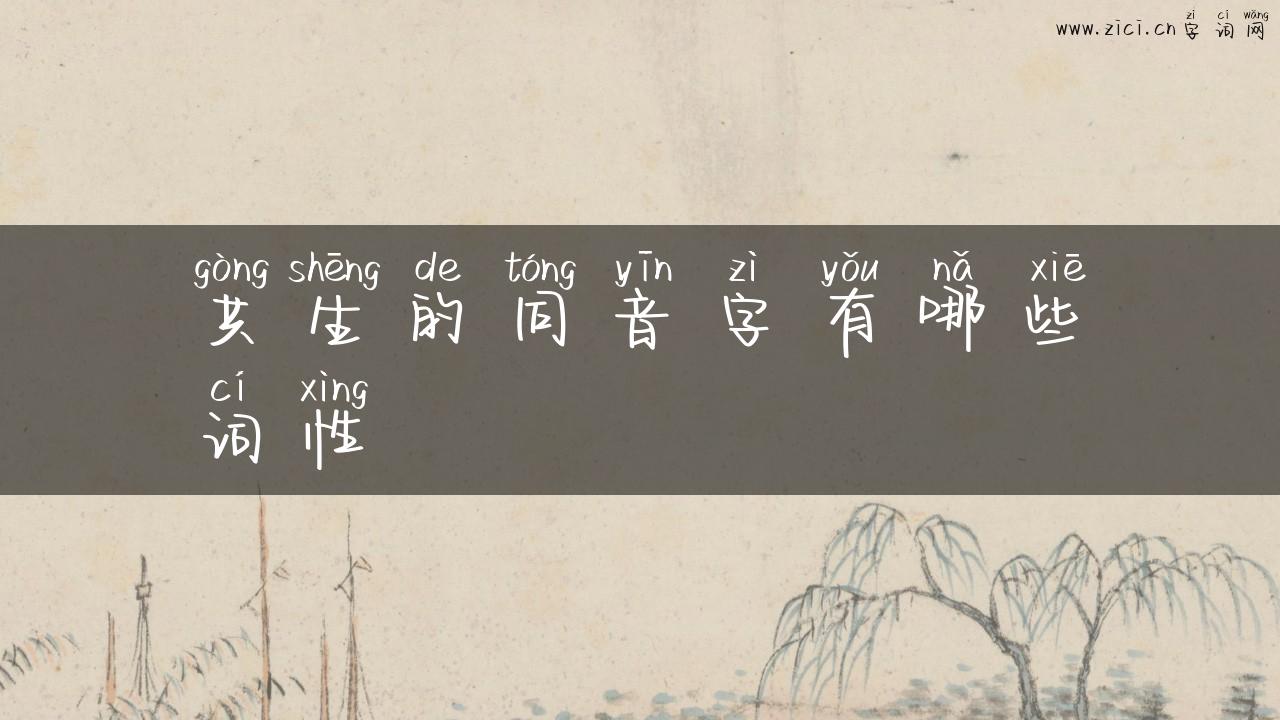 zì cí wǎng
www.zici.cn 字词网
gòng shēng de tóng yīn zì yǒu nǎ xiē
共生的同音字有哪些
cí xìng
词性